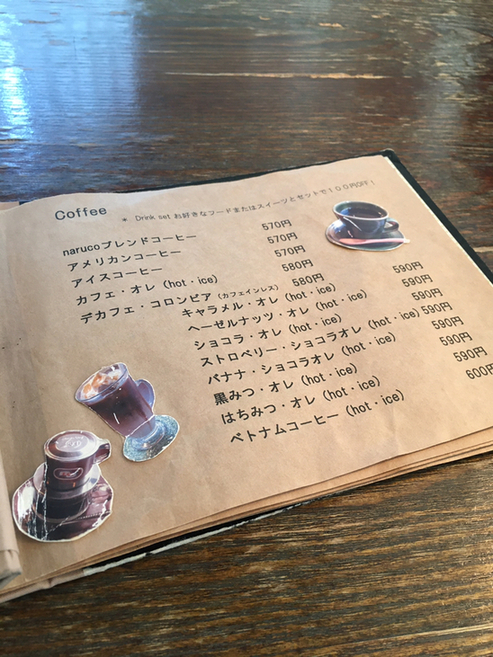 Coffee ＊ Drink set お好きなフードまたはスイーツとセットで１００円OFF！
narucoブレンドコーヒー 570円
アメリカンコーヒー 570円
アイスコーヒー 570円
カフェ・オレ（hot・ice） 580円
デカフェ・コロンビア（カフェインレス） 580円
キャラメル・オレ（hot・ice） 590円
ヘーゼルナッツ・オレ（hot・ice） 590円
ショコラ・オレ（hot・ice） 590円
ストロベリー・ショコラオレ（hot・ice） 590円
バナナ・ショコラオレ（hot・ice） 590円
黒みつ・オレ（hot・ice） 590円
はちみつ・オレ（hot・ice） 590円
ベトナムコーヒー（hot・ice） 600円